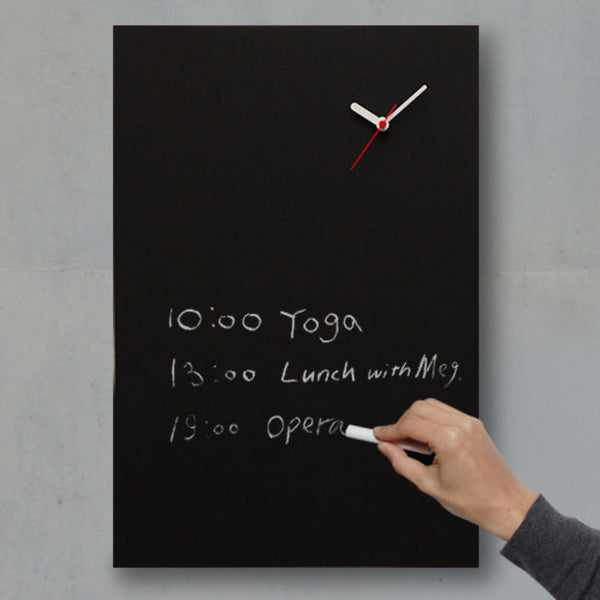 10:00 Yoga
13:00 Lunch with Meg.
19:00 Opera